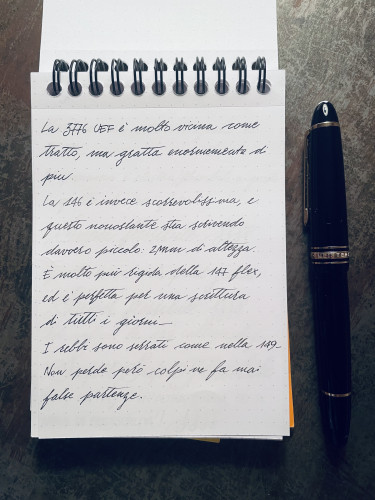 La 3776 UEF è molto vicina come
tratto, ma gratta enormemente di
più.
La 146 è invece scorrevolissima, e
questo nonostante stia scrivendo
davvero piccolo: 2mm di altezza.
È molto più rigida della 147 flex,
ed è perfetta per una scrittura
di tutti i giorni_
I rebbi sono serrati come nella 149_
Non perde però colpi ne fa mai
false partenze.